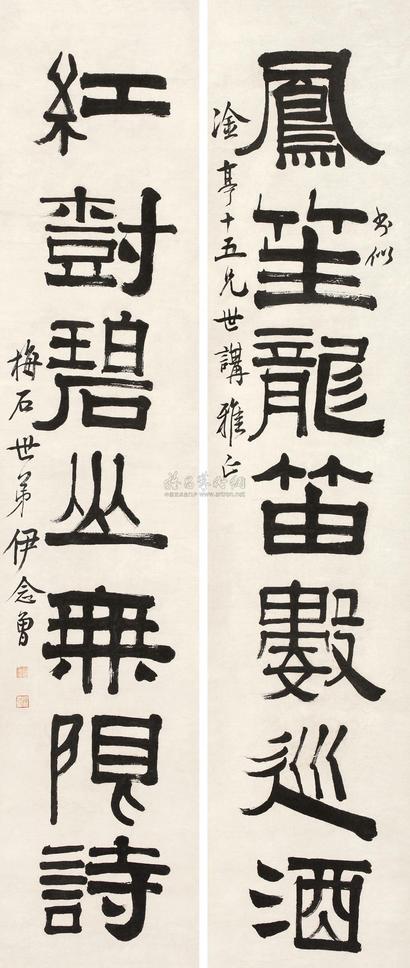 鳳笙龍笛數巡酒
書似
淦亭十五兄世講雅正
紅樹碧山無限詩
梅石世弟伊念曾